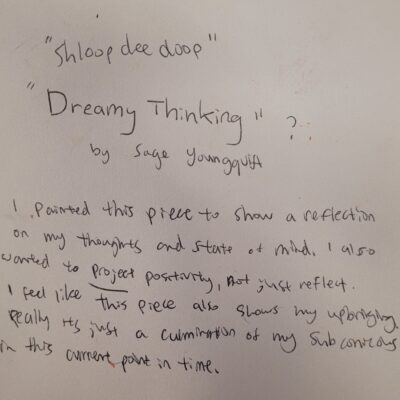 "Shloop dee doop"
"Dreamy Thinking" ?
by Sage Youngquist
I painted this piece to show a reflection
on my thoughts and state of mind. I also
wanted to project positivity, not just reflect.
I feel like this piece also shows my upbringing.
Really its just a culmination of my subconscious
in this current point in time.